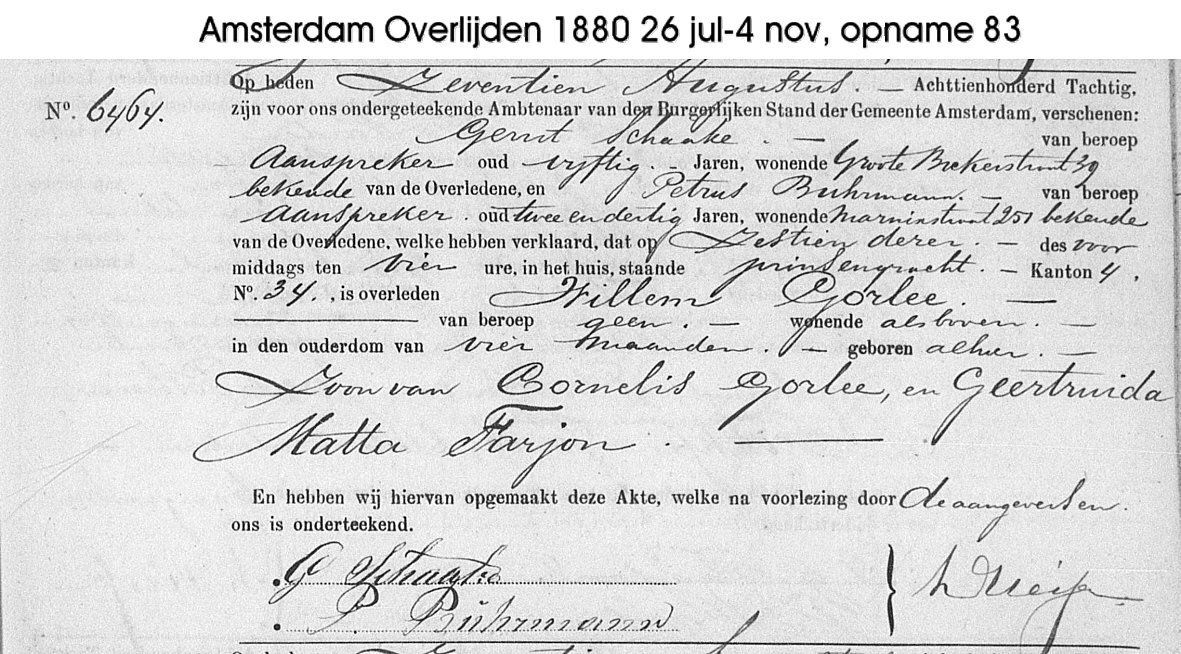 Amsterdam Overlijden 1880 26 jul-4 nov, opname 83
Op heden Zeventien Augustus. — Achttienhonderd Tachtig,
Nº. 6464. zijn voor ons ondergeteekende Ambtenaar van den Burgerlijken Stand der Gemeente Amsterdam, verschenen:
Gerrit Schaake. — van beroep
Aanspreker oud vyftig. Jaren, wonende Groote Bickerstraat 39
bekende van de Overledene, en Petrus Buhrmann. — van beroep
Aanspreker. oud twee en dertig Jaren, wonende Marnixstraat 251 bekende
van de Overledene, welke hebben verklaard, dat op Zestien dezer. — des voor
middags ten vier ure, in het huis, staande prinsengracht. — Kanton 4.
Nº. 34., is overleden Willem Gorlee. —
— van beroep geen. — wonende als boven. —
in den ouderdom van vier maanden. — geboren alhier. —
Zoon van Cornelis Gorlee, en Geertruida
Matta Farjon. —
En hebben wij hiervan opgemaakt deze Akte, welke na voorlezing door de aangevers en
ons is onderteekend.
G Schaake
P. Bührmann